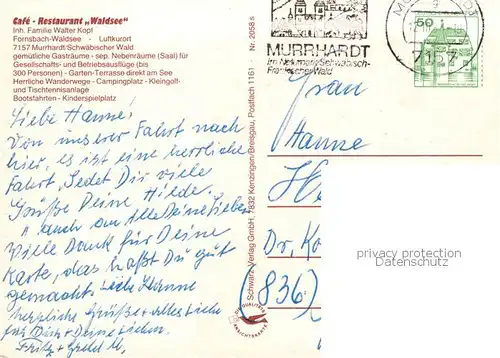 Café - Restaurant „Waldsee"
Inh. Familie Walter Kopf
Fornsbach-Waldsee - Luftkurort
7157 Murrhardt/Schwäbischer Wald
gemütliche Gasträume - sep. Nebenräume (Saal) für
Gesellschafts- und Betriebsausflüge (bis
300 Personen) - Garten-Terrasse direkt am See
Herrliche Wanderwege - Campingplatz - Kleingolf-
und Tischtennisanlage
Bootsfahrten - Kinderspielplatz
Liebe Hanne!
Von unserer Fahrt nach
hier, es ist eine herrliche
Fahrt, sedet Dir viele
Grüße Deine Hilde.
" auch an Alle Deine Lieben
Vielen Dank für Deine
Karte, das hast Du gut
gemacht. Liebe Hanne
herzliche Grüße + alles Liebe
für Dich + Deine Lieben
Fritz +
Schwarz-Verlag GmbH, 7832 Kenzingen/Breisgau, Postfach 1161 Nr. 2058 s
MURRHARDT
im Naturpark Schwäbisch-
Fränkischer Wald
7157
50
Frau
Hanne
He
Dr. Ko
(836)
privacy protection
Datenschutz
QUALITÄTS
ANSICHTSKARTE